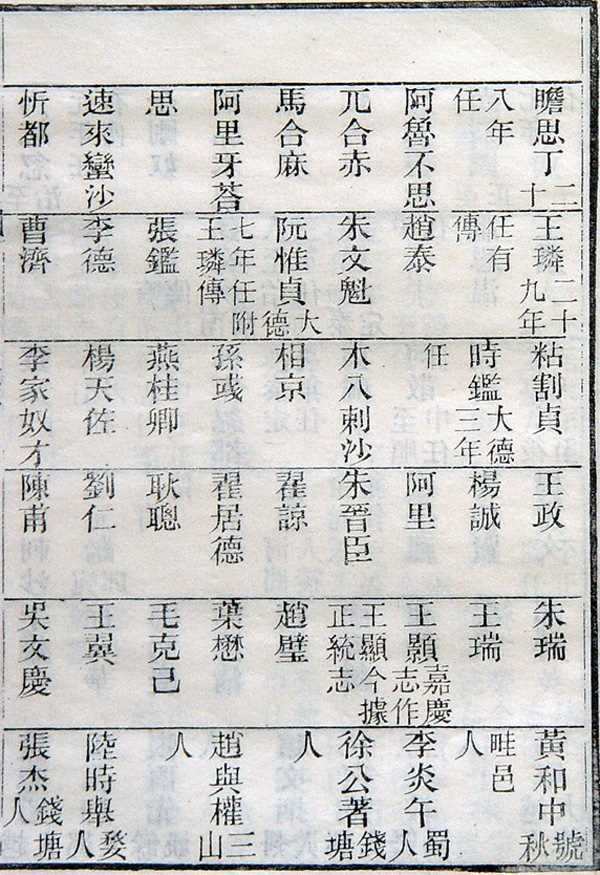 瞻思丁二十
八年任
阿魯不思
兀合赤
馬合麻
阿里牙荅
思
速來蠻沙
忻都
王璘二十九年
任有傳
趙泰
朱文魁
阮惟貞大德
七年任附王璘傳
張鑑
李德
曹濟
粘割貞
時鑑大德三年
任
木八剌沙
相京
孫彧
燕桂卿
楊天佐
李家奴才
王政
楊誠
阿里
朱晉臣
翟諒
翟居德
耿聰
劉仁
陳甫
朱瑞
王瑞
王顯嘉慶志作
王顯今據正統志
趙璧
葉懋
毛克己
王翼
吳文慶
黃和中號秋
畦邑人
李炎午蜀人
徐公著錢塘
人
趙與權三山
人
陸時舉婺人
張杰錢塘人